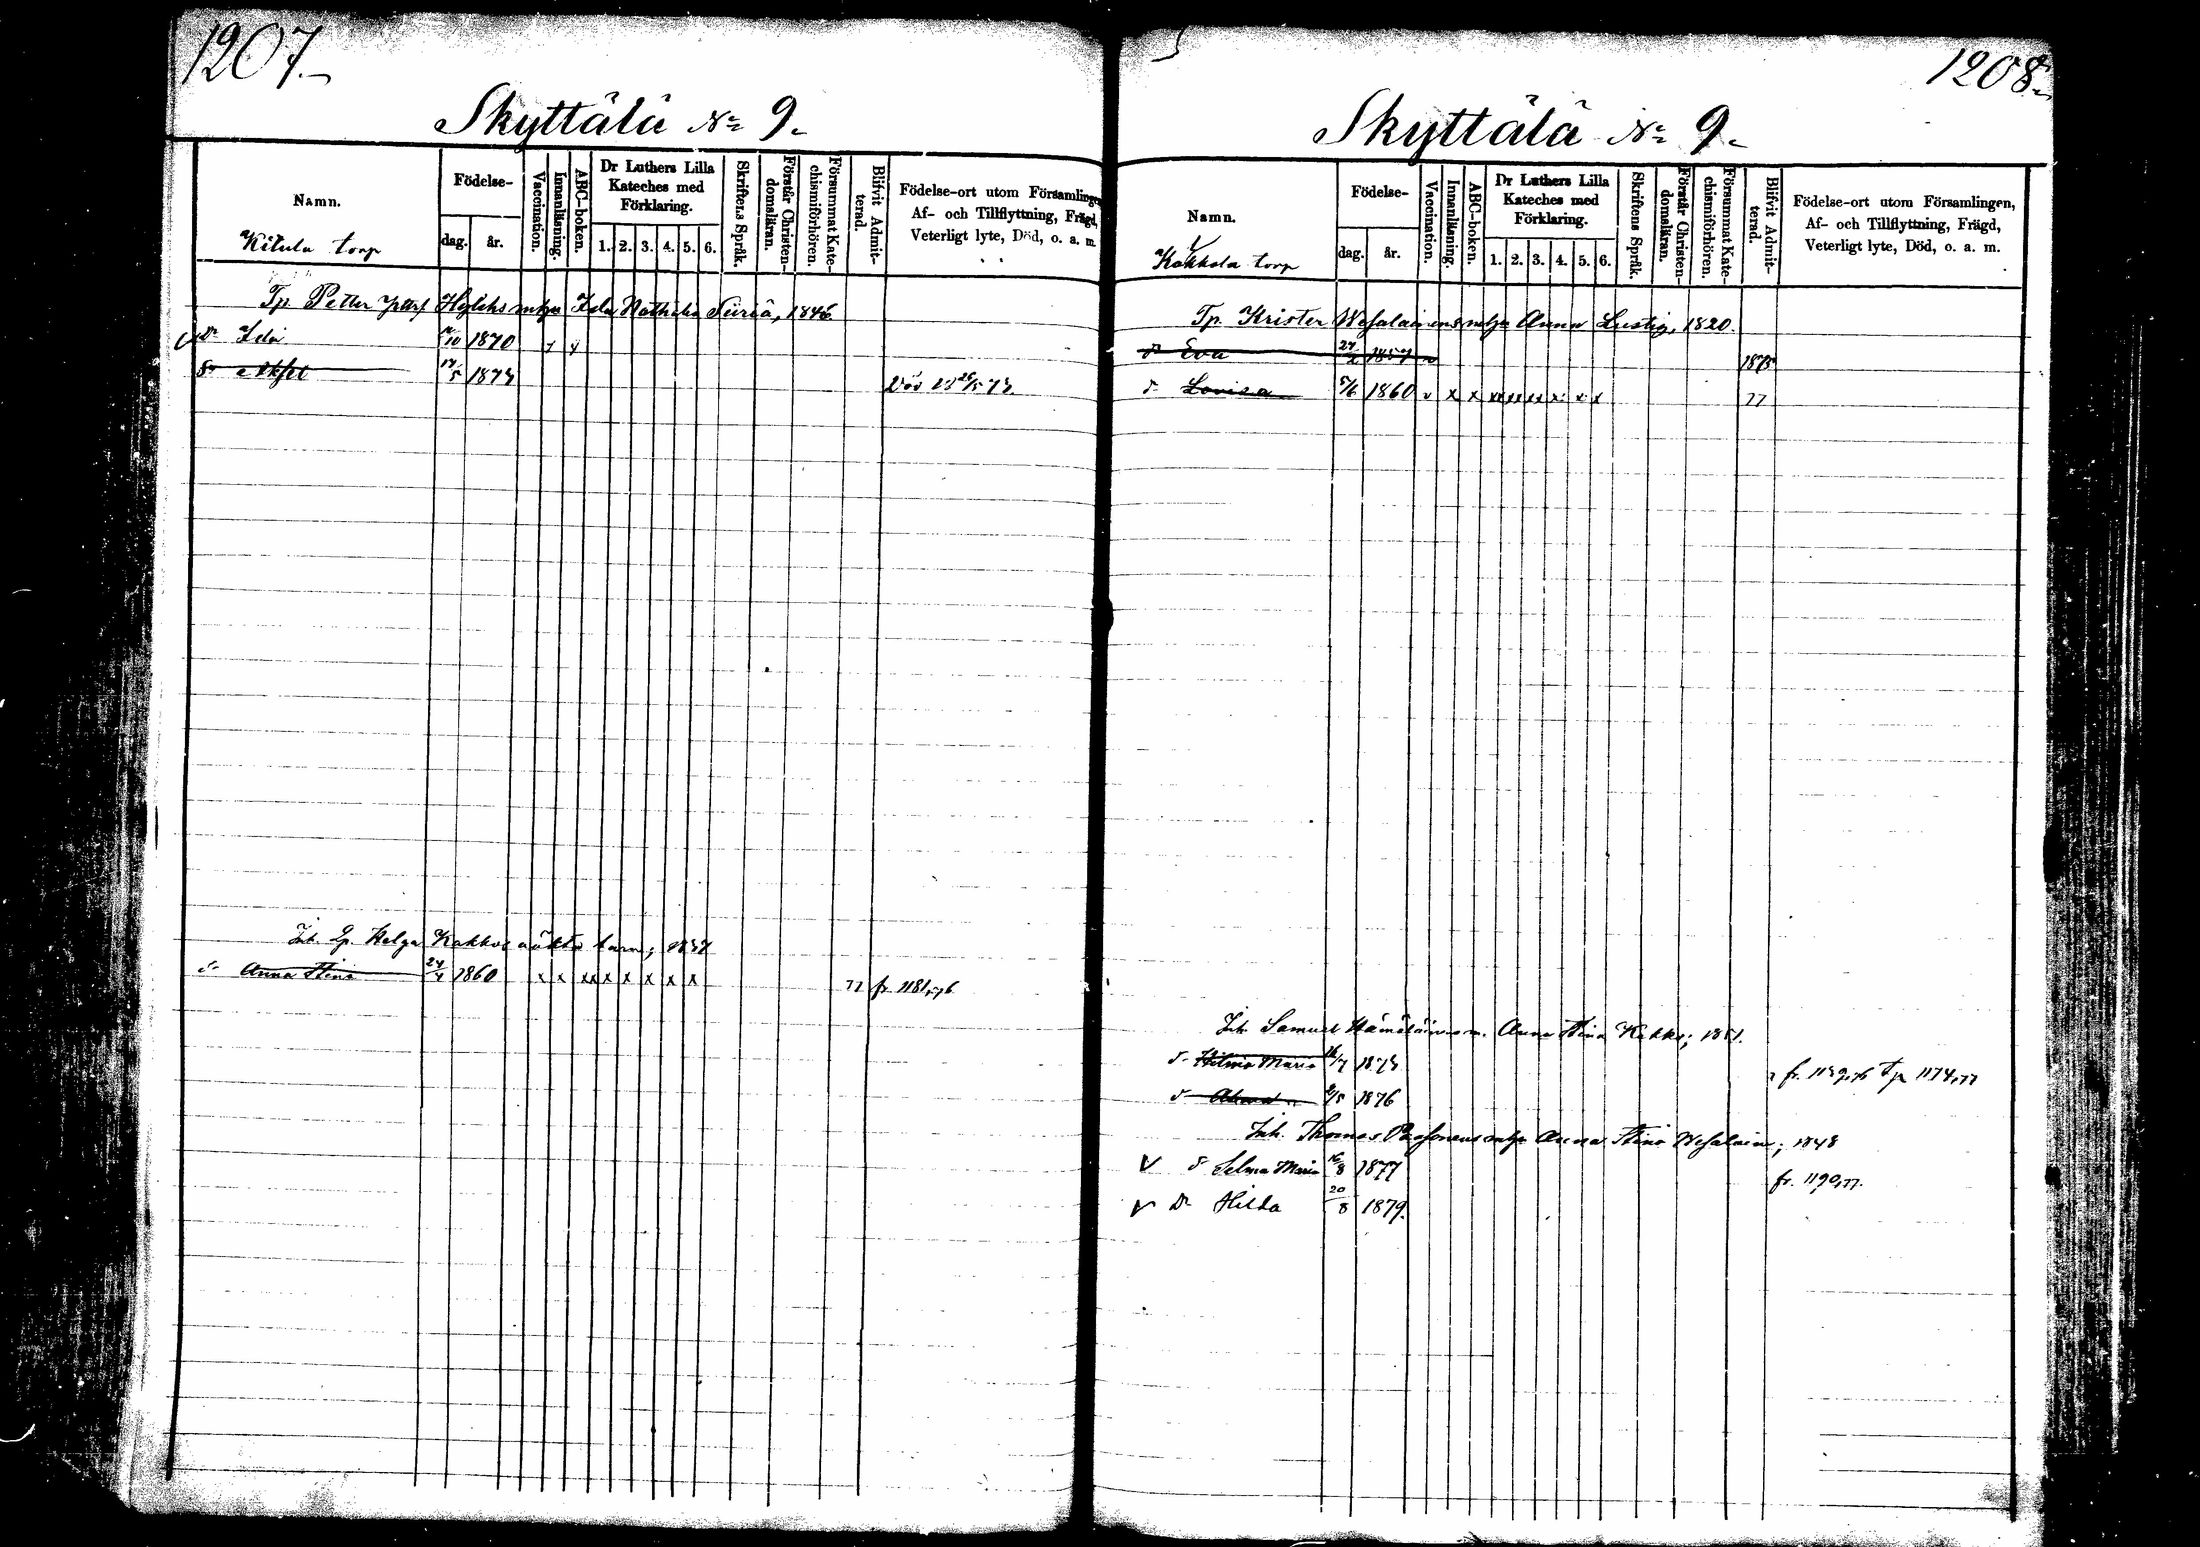 1207.
Skyttälä No 9.
Namn.
Födelse-
dag.
år.
Vaccination.
Innanläsning.
ABC-boken.
Dr Luthers Lilla
Kateches med
Förklaring.
1. 2. 3. 4. 5. 6.
Skriftens Språk.
Förstår Christen-
domsläran.
Försummat Kate-
chismiförhören.
Blifvit Admit-
terad.
Födelse-ort utom Församlingen,
Af- och Tillflyttning, Frägd,
Veterligt lyte, Död, o. a. m.
Kitula torp
Tp. Petter Hylkis Ida Nathalia 1846
Dr Ida 1870
Sr 1873
Död
Inh. Helga Kakkos barn;
dr Anna Stina 24/4 1860 x x xx x x x x x 77 fr. 1181,76
1208.
Skyttälä No 9.
Namn.
Födelse-
dag.
år.
Vaccination.
Innanläsning.
ABC-boken.
Dr Luthers Lilla
Kateches med
Förklaring.
1. 2. 3. 4. 5. 6.
Skriftens Språk.
Förstår Christen-
domsläran.
Försummat Kate-
chismiförhören.
Blifvit Admit-
terad.
Födelse-ort utom Församlingen,
Af- och Tillflyttning, Frägd,
Veterligt lyte, Död, o. a. m.
Kakkola torp
Tp. Krister Wesalainens Anna Lustig, 1820.
dr Eva 1857 1875
dr Lovisa 1860 v x x 77
Inh. Samuel Hämäläinens Anna Stina Kakko; 1851.
dr Hilma Maria 1873 fr. 1174,77
dr 1876
Inh. Thomas Anna Stina Wesalain; 1848
v dr Selma Maria 1877 fr. 1190,77.
v Dr Hilda 20/8 1879.